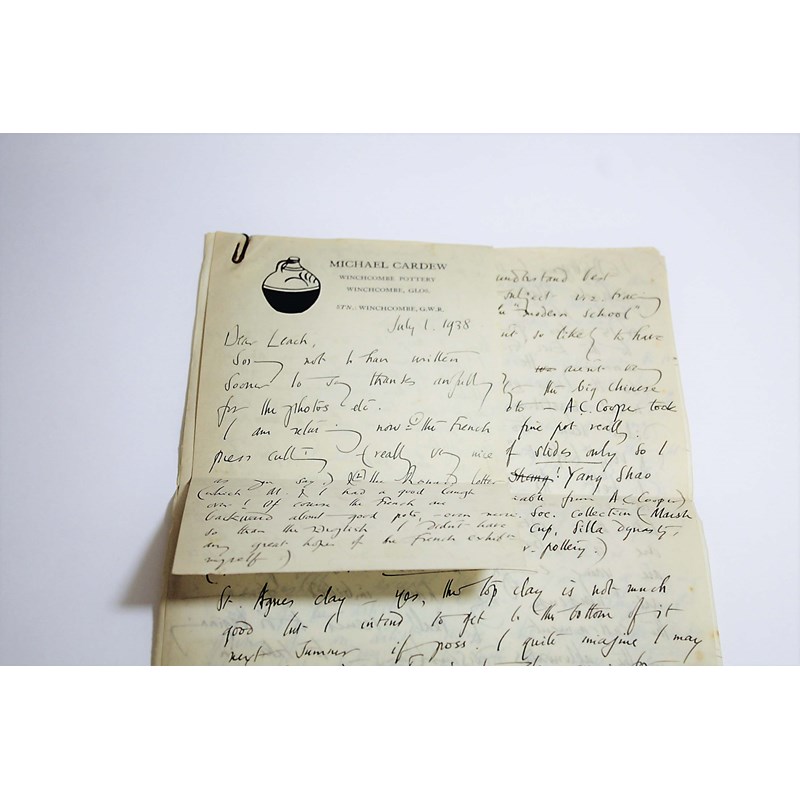 MICHAEL CARDEW
WINCHCOMBE POTTERY
WINCHCOMBE, GLOS.
STN.: WINCHCOMBE, G.W.R.
July 1. 1938
Dear Leach,
Sorry not to have written
sooner to say thanks awfully
for the photos etc.
I am returning now ① the French
press cutting (really very nice
as you say.) & ② the letter
(which M. & I had a good laugh
over! Of course the French are
backward about good pots, even more
so than the English & I didn't have
any great hopes of the French exhibn
myself.)
understand best
subject viz. tracing
"modern school"
not so likely to have
the big Chinese
A.C. Cooper took
fine pot really.
of slides only so I
Yang Shao
from A C Cooper)
Soc. collection (Marsh
Cup, Silla dynasty,
pottery.)
St. Agnes clay – yes, the top clay is not much
good but I intend to get to the bottom of it
next summer if poss. I quite imagine I may